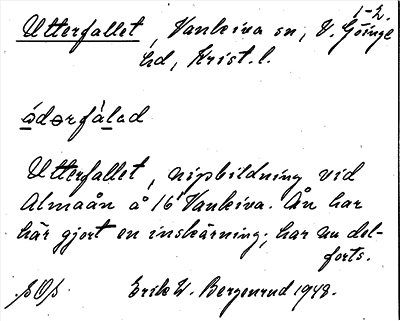 1-2.
Utterfallet, Vankiva sn, V. Göinge
hd, Krist. l.
ádərfàlad
Utterfallet, nipbildning vid
Almaån å 16 Vankiva. Ån har
här gjort en inskärning, har nu del-
forts.
Erik W. Bergenrud 1943.